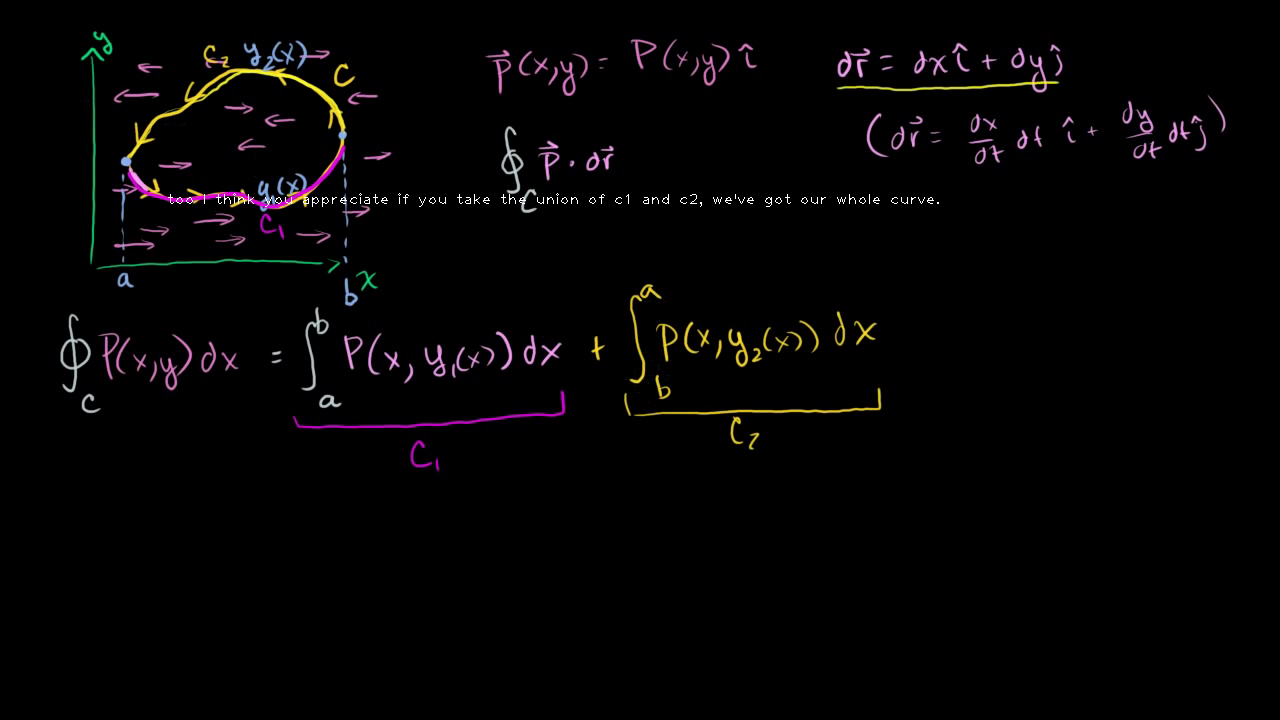 y
C₂ y₂(x)
C
y₁(x)
C₁
a
b x
p⃗(x,y) = P(x,y) î
dr⃗ = dx î + dy ĵ
(dr⃗ = dx/dt dt î + dy/dt dt ĵ)
∮_C p⃗ · dr⃗
too. I think you appreciate if you take the union of c1 and c2, we've got our whole curve.
∮_C P(x,y) dx = ∫_a^b P(x, y₁(x)) dx + ∫_b^a P(x, y₂(x)) dx
C₁
C₂